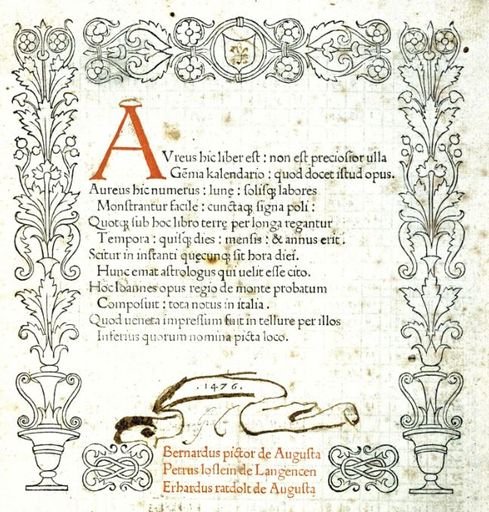 AVreus hic liber est : non est preciosior ulla
Gēma kalendario : quod docet istud opus.
Aureus hic numerus : lune : solisq; labores
Monstrantur facile : cunctaq; signa poli :
Quotq; sub hoc libro terre per longa regantur
Tempora : quisq; dies : mensis : & annus erit .
Scitur in instanti quecunq; sit hora diei.
Hunc emat astrologus qui uelit esse cito.
Hoc Ioannes opus regio de monte probatum
Composuit : tota notus in italia .
Quod ueneta impressum fuit in tellure per illos
Inferius quorum nomina picta loco.
.1476.
Bernardus pictor de Augusta
Petrus loslein de Langencen
Erhardus ratdolt de Augusta